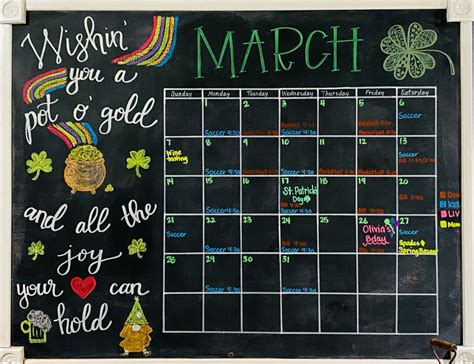 Wishin'
you a
pot o' gold
and all the
joy
your can
hold
MARCH
Sunday Monday Tuesday Wednesday Thursday Friday Saturday
1 2 3 4 5 6
Soccer
Soccer 4:30 Soccer 4:30
7 8 9 10 11 12 13
Wine
tasting
Soccer
Soccer 4:30 Soccer 4:30
14 15 16 17 18 19 20
St. Patrick's
Day
Soccer 4:30 Soccer 4:30
21 22 23 24 25 26 27
Olivia's
Bday
Soccer
Soccer
Spades &
Soccer 4:30 Soccer 4:30
29 30 31
Soccer 4:30 Soccer 4:30